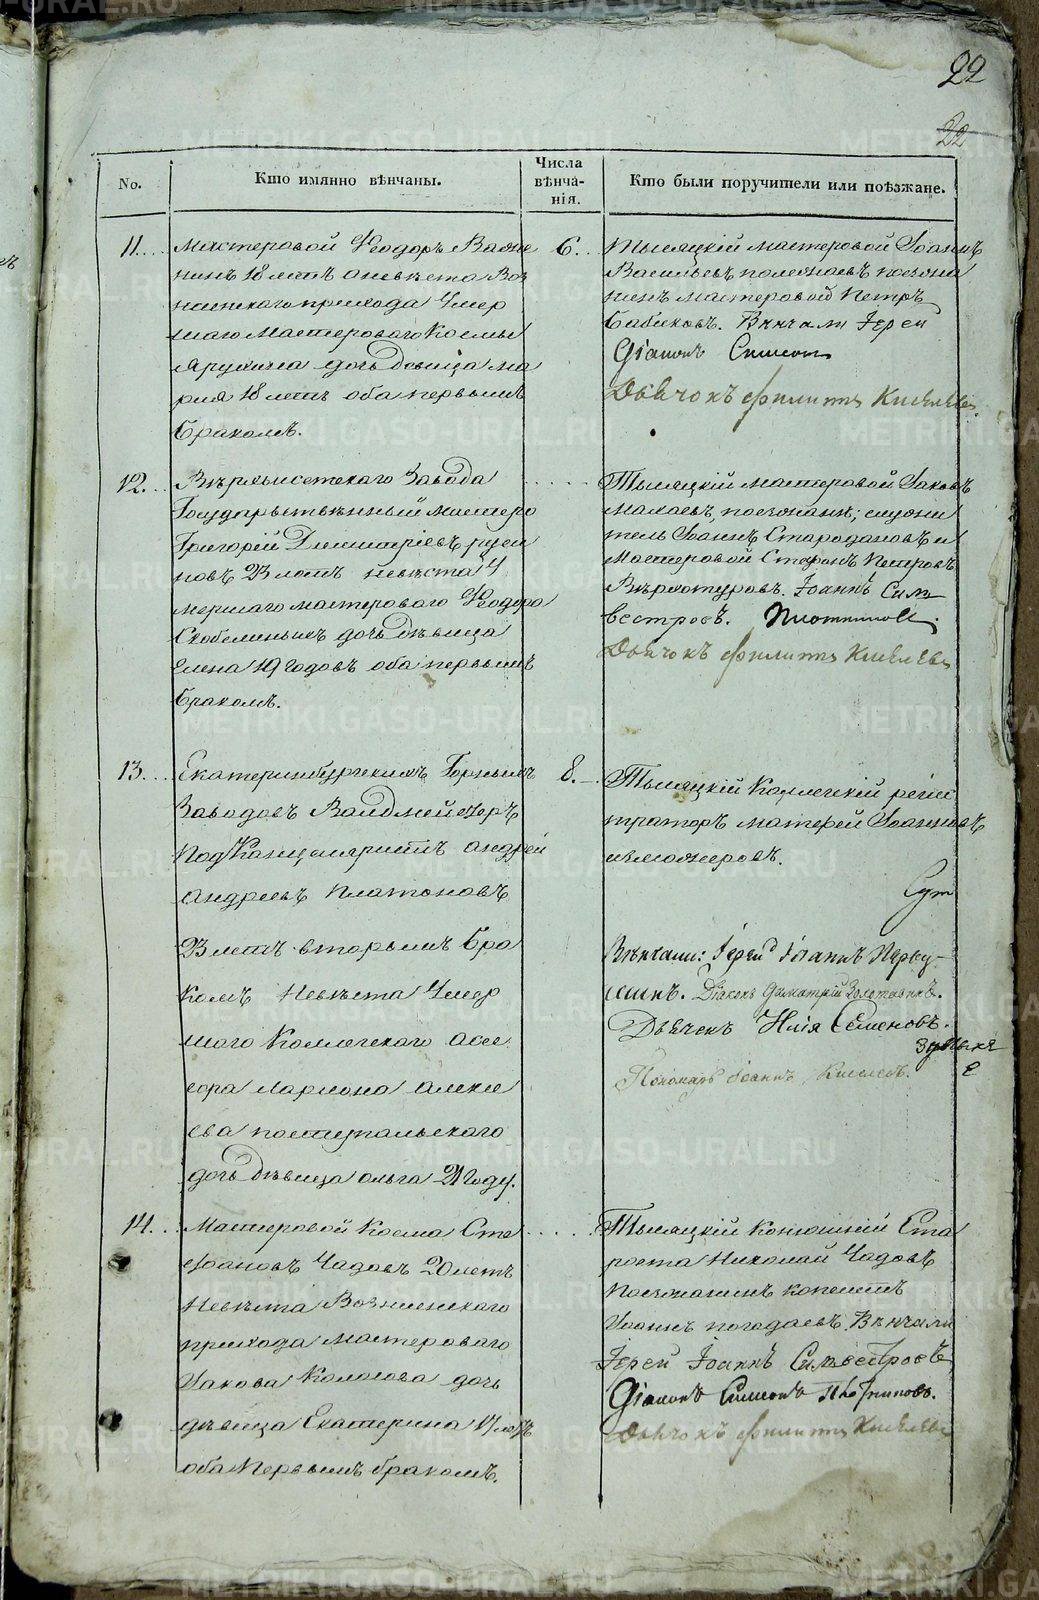 22
22
No.
Кто имянно вѣнчаны.
Числа
вѣнча-
нія.
Кто были поручители или поѣзжане.
11.
Мастеровой Ѳеодоръ Важе
нинъ 18 летъ а невѣста Воз
несенскаго прихода Умер
шаго Мастероваго Космы
дочь Девица Ма
рія 18 летъ оба первымъ
бракомъ.
6.
Тысяцкій мастеровой Іоаннъ
Васильевъ поезжа
нинъ мастеровой Петръ
Бабиковъ. Вѣнчали Іерей
Діаконъ Симеонъ
Дьячокъ Филиппъ Киселевъ.
12.
Вѣрхъисетскаго Завода
Государственный мастеро
Григорій Димитріевъ
новъ 23 летъ невѣста У
мершаго мастероваго Ѳеодора
дочь дѣвица
Елена 19 годовъ оба первымъ
бракомъ.
Тысяцкій мастеровой Іаковъ
поезжанѣ; служи
тель Іоаннъ Стародановъ и
Мастеровой Стефанъ Петровъ
Вѣрхотуровъ. Іоаннъ Сил
вестровъ. Плотниковъ.
Дьячокъ Филиппъ Киселевъ
13.
Екатеринбургскихъ Горныхъ
Заводовъ Валдмейстеръ
Подканцеляристъ Андрей
Андреевъ Платоновъ
23 летъ вторымъ бра
комъ Невѣста Умер
шаго Коллегскаго Ассе
сора Лариона Алексе
ева поступальскаго
дочь дѣвица ольга 21 году.
8.
Тысяцкій Коллегскій регис
траторъ Матфей Іоанновъ
Вѣнчали: Іерей Іоаннъ Перву-
шинъ. Діаконъ Димитрій Золотавинъ.
Дьячекъ Илія Семеновъ.
Пономарь Іоаннъ Киселевъ.
14.
Мастеровой Косма Сте
фановъ Чадовъ 20 летъ
Невѣста Вознесенскаго
прихода мастероваго
Іакова дочь
дѣвица Екатерина 17 летъ
оба Первымъ бракомъ.
Тысяцкій конюшній Ста
роста Николай Чадовъ
Поезжанинъ копеистъ
Іоаннъ погодаевъ. Вѣнчали
Іерей Іоаннъ Силвестровъ
Діаконъ Симеонъ Плотниковъ.
Дьячокъ Филиппъ Киселевъ
METRIKI.GASO-URAL.RU